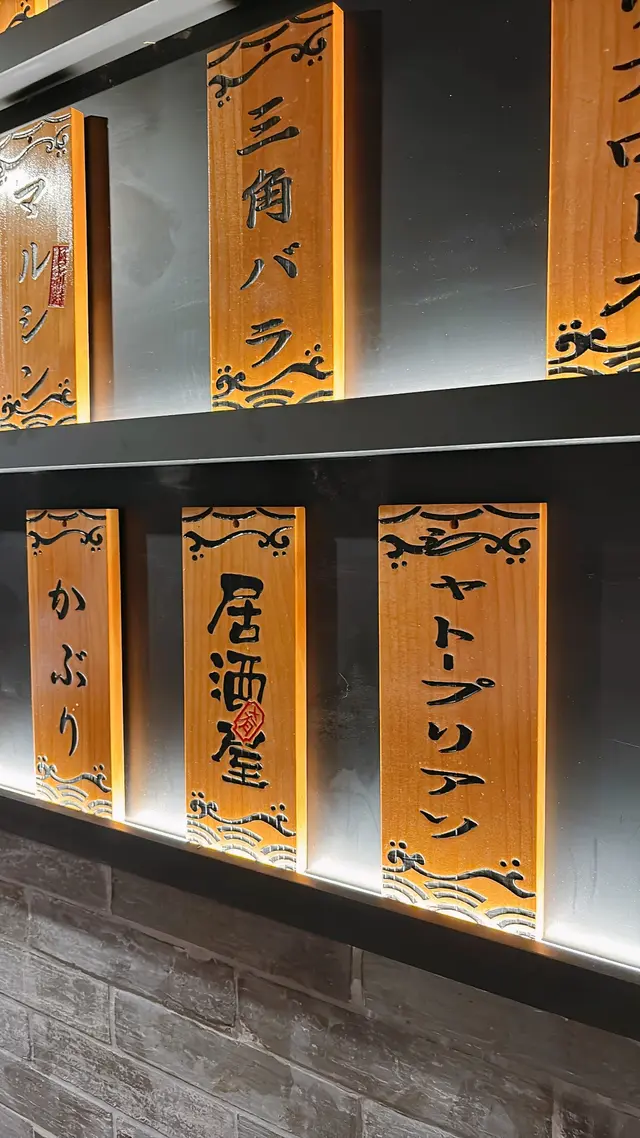 マルシン
三角バラ
ロース
かぶり
居酒屋
シャトープリアン